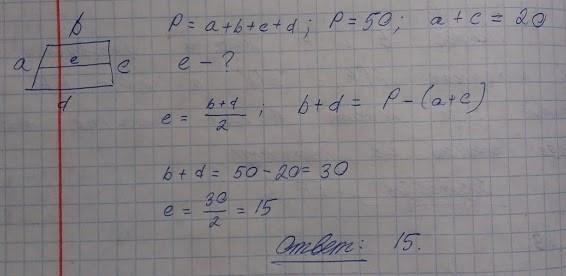 b
P = a+b+c+d ; P = 50 ; a + c = 20
a e c
e - ?
d
e = \frac{b+d}{2} ; b+d = P-(a+c)
b + d = 50-20 = 30
e = \frac{30}{2} = 15
Ответ: 15.